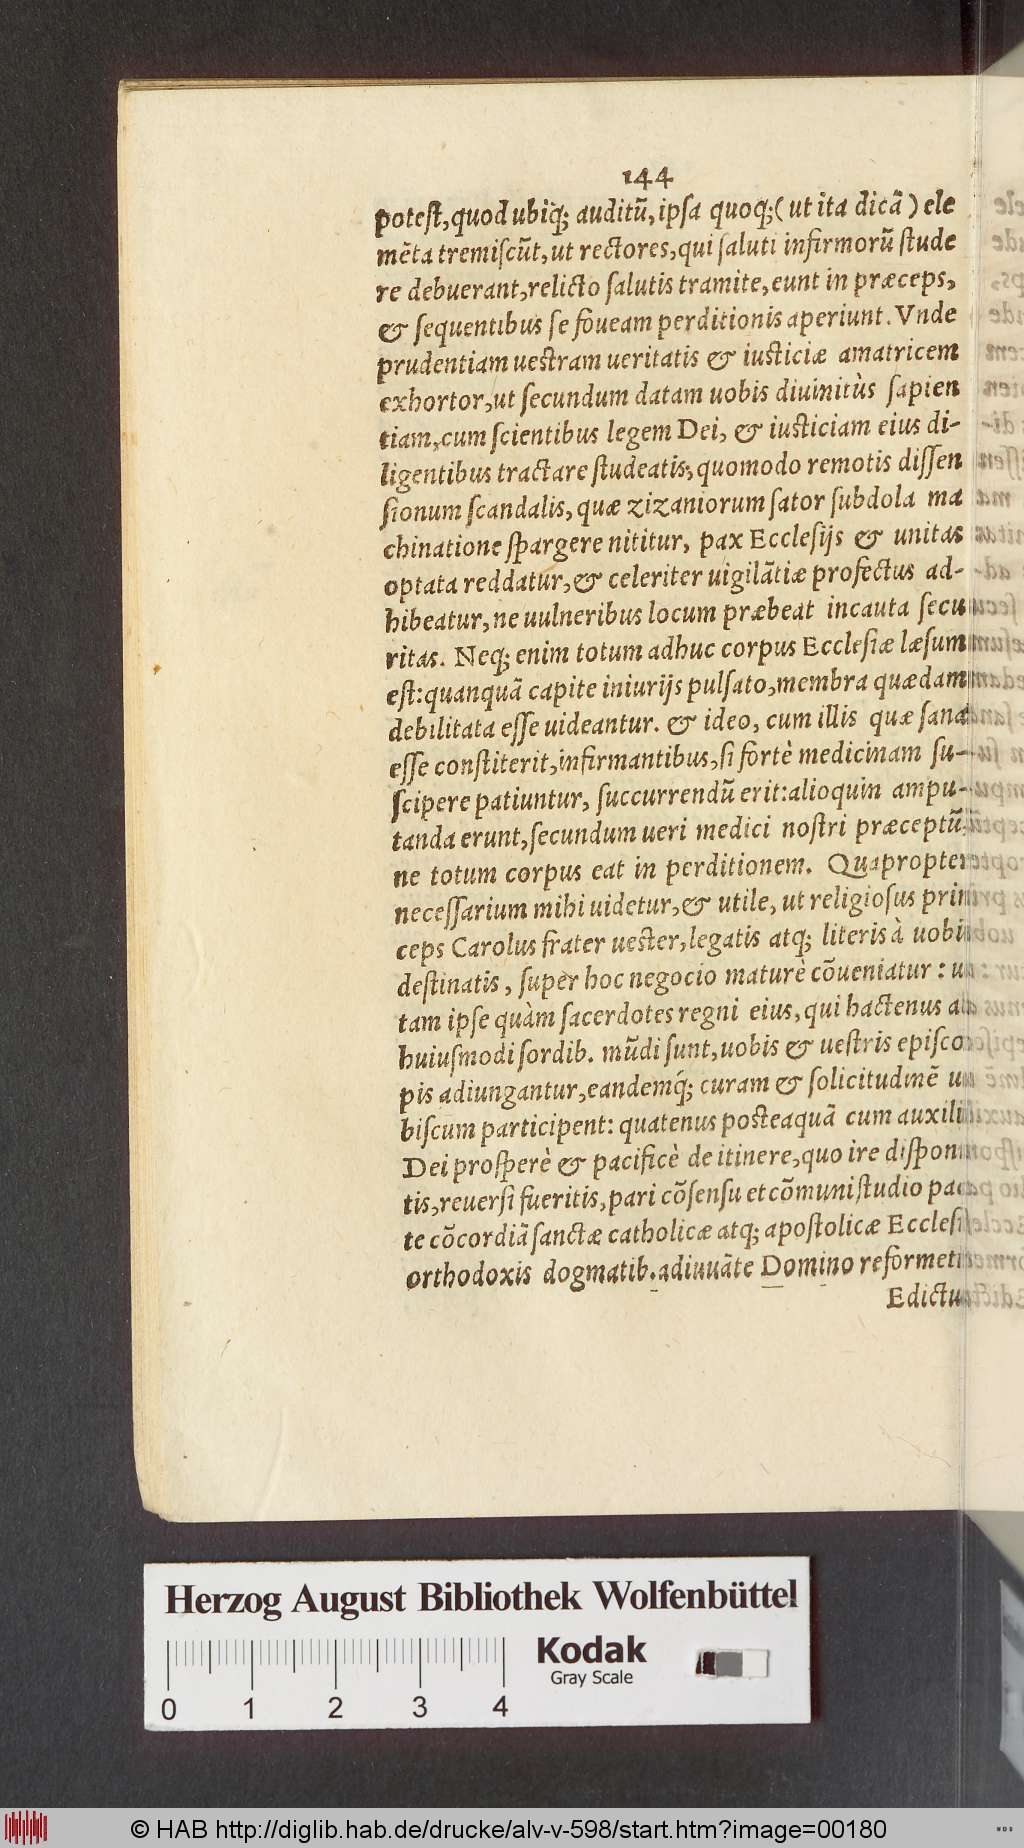 144
poteſt, quod ubiq; auditũ, ipſa quoq; (ut ita dicã) ele
mẽta tremiſcũt, ut rectores, qui ſaluti infirmorũ ſtude
re debuerant, relicto ſalutis tramite, eunt in præceps,
& ſequentibus ſe foueam perditionis aperiunt. Vnde
prudentiam ueſtram ueritatis & iuſticiæ amatricem
exhortor, ut ſecundum datam uobis diuinitùs ſapien
tiam, cum ſcientibus legem Dei, & iuſticiam eius di-
ligentibus tractare ſtudeatis, quomodo remotis diſſen
ſionum ſcandalis, quæ zizaniorum ſator ſubdola ma
chinatione ſpargere nititur, pax Eccleſijs & unitas
optata reddatur, & celeriter uigilãtiæ profectus ad-
hibeatur, ne uulneribus locum præbeat incauta ſecu
ritas. Neq; enim totum adhuc corpus Eccleſiæ læſum
eſt: quanquã capite iniurijs pulſato, membra quædam
debilitata eſſe uideantur. & ideo, cum illis quæ ſana
eſſe conſtiterit, infirmantibus, ſi fortè medicinam ſu-
ſcipere patiuntur, ſuccurrendũ erit: alioquin ampu-
tanda erunt, ſecundum ueri medici noſtri præceptũ,
ne totum corpus eat in perditionem. Quapropter
neceſſarium mihi uidetur, & utile, ut religioſus prin
ceps Carolus frater ueſter, legatis atq; literis à uobis
deſtinatis, ſuper hoc negocio maturè cõueniatur: u
tam ipſe quàm ſacerdotes regni eius, qui hactenus a
huiuſmodi ſordib. mũdi ſunt, uobis & ueſtris epiſco
pis adiungantur, eandemq́; curam & ſolicitudinẽ u
biſcum participent: quatenus poſteaquã cum auxili
Dei proſperè & pacificè de itinere, quo ire diſpon
tis, reuerſi fueritis, pari cõſenſu et cõmuni ſtudio pa
te cõcordiã ſanctæ catholicæ atq; apoſtolicæ Eccleſi
orthodoxis dogmatib. adiuuãte Domino reformeti
Edictu
Herzog August Bibliothek Wolfenbüttel
Kodak
Gray Scale
0 1 2 3 4
© HAB http://diglib.hab.de/drucke/alv-v-598/start.htm?image=00180